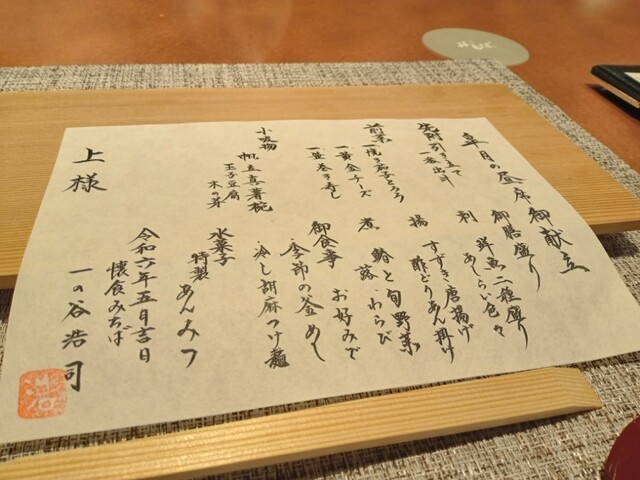 皐月の昼席御献立
先附 引き立て
一番出汁
前菜 一焼き茄子とろろ
一黄金チーズ
一笹巻き寿し
小吸物
帆立真薯椀
玉子豆腐
木の芽
御膳盛り
利 鮮魚二種盛り
あしらい色々
揚 すずき唐揚げ
酢どりあん掛け
煮 鰆と旬野菜
蕗、わらび
御食事 お好みで
、季節の釜めし
、冷し胡麻つけ麺
水菓子
特製 あんみつ
令和六年五月吉日
懐食みちば
一の谷浩司
上様